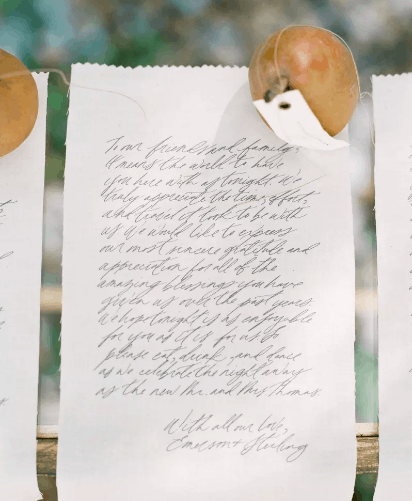 To our friends and family,
It means the world to have
you here with us tonight. We
truly appreciate the time, effort,
and travel it took to be with
us. We would like to express
our most sincere gratitude and
appreciation for all of the
amazing blessings you have
given us over the past years.
We hope tonight is as enjoyable
for you as it is for us. So
please eat, drink, and dance
as we celebrate the night away
as the new Mr. and Mrs. Thomas.
With all our love,
Emerson + Sterling